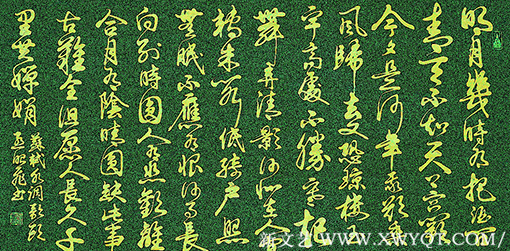 明月幾時有把酒問
青天不知天上宮闕
今夕是何年我欲乘
風歸去又恐瓊樓玉
宇高處不勝寒起
舞弄清影何似在人間
轉朱閣低綺戶照
無眠不應有恨何事長
向別時圓人有悲歡離
合月有陰晴圓缺此事
古難全但願人長久千
里共嬋娟
蘇軾水調歌頭
WWW.XWYQT.COM